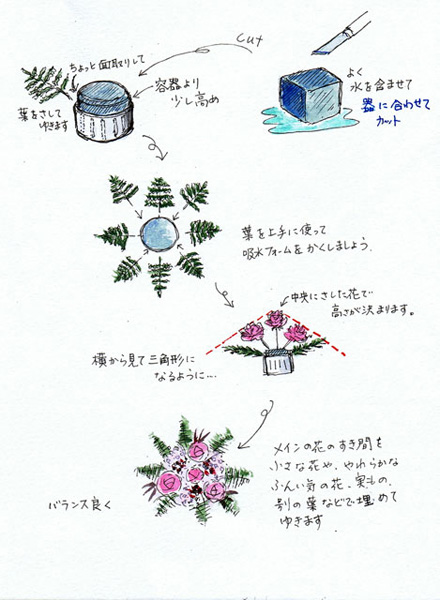 cut
ちょっと面取りして
容器より
少し高め
葉をさして
ゆきます
よく
水を含ませて
器に合わせて
カット
葉を上手に使って
吸水フォームをかくしましょう.
中央にさした花で
高さが決まります。
横から見て三角形に
なるように….
メインの花のすき間を
小さな花や、やわらかな
ふんい気の花、実もの、
別の葉などで埋めて
ゆきます
バランス良く